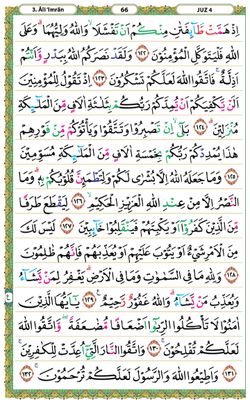 3. Âli 'Imrân 66 JUZ 4
اِذْ هَمَّتْ طَّآئِفَتٰنِ مِنْكُمْ اَنْ تَفْشَلَاۙ وَاللّٰهُ وَلِيُّهُمَاؕ وَعَلَى
اللّٰهِ فَلْيَتَوَكَّلِ الْمُؤْمِنُوْنَ ﴿١٢٢﴾ وَلَقَدْ نَصَرَكُمُ اللّٰهُ بِبَدْرٍ وَّاَنْتُمْ
اَذِلَّةٌۚ فَاتَّقُوا اللّٰهَ لَعَلَّكُمْ تَشْكُرُوْنَ ﴿١٢٣﴾ اِذْ تَقُوْلُ لِلْمُؤْمِنِيْنَ
اَلَنْ يَّكْفِيَكُمْ اَنْ يُّمِدَّكُمْ رَبُّكُمْ بِثَلٰثَةِ اٰلَافٍ مِّنَ الْمَلٰٓئِكَةِ
مُنْزَلِيْنَؕ ﴿١٢٤﴾ بَلٰٓىۙ اِنْ تَصْبِرُوْا وَتَتَّقُوْا وَيَاْتُوْكُمْ مِّنْ فَوْرِهِمْ
هٰذَا يُمْدِدْكُمْ رَبُّكُمْ بِخَمْسَةِ اٰلَافٍ مِّنَ الْمَلٰٓئِكَةِ مُسَوِّمِيْنَ
﴿١٢٥﴾ وَمَا جَعَلَهُ اللّٰهُ اِلَّا بُشْرٰى لَكُمْ وَلِتَطْمَئِنَّ قُلُوْبُكُمْ بِهٖؕ وَمَا
النَّصْرُ اِلَّا مِنْ عِنْدِ اللّٰهِ الْعَزِيْزِ الْحَكِيْمِۙ ﴿١٢٦﴾ لِيَقْطَعَ طَرَفًا
مِّنَ الَّذِيْنَ كَفَرُوْٓا اَوْ يَكْبِتَهُمْ فَيَنْقَلِبُوْا خَآئِبِيْنَ ﴿١٢٧﴾ لَيْسَ لَكَ
مِنَ الْاَمْرِ شَيْءٌ اَوْ يَتُوْبَ عَلَيْهِمْ اَوْ يُعَذِّبَهُمْ فَاِنَّهُمْ ظٰلِمُوْنَ
﴿١٢٨﴾ وَلِلّٰهِ مَا فِى السَّمٰوٰتِ وَمَا فِى الْاَرْضِؕ يَغْفِرُ لِمَنْ يَّشَآءُ
وَيُعَذِّبُ مَنْ يَّشَآءُؕ وَاللّٰهُ غَفُوْرٌ رَّحِيْمٌ ﴿١٢٩﴾ يٰٓاَيُّهَا الَّذِيْنَ
اٰمَنُوْا لَا تَاْكُلُوا الرِّبٰٓوا اَضْعَافًا مُّضٰعَفَةًࣕ وَّاتَّقُوا اللّٰهَ
لَعَلَّكُمْ تُفْلِحُوْنَۚ ﴿١٣٠﴾ وَاتَّقُوا النَّارَ الَّتِيْٓ اُعِدَّتْ لِلْكٰفِرِيْنَۚ
﴿١٣١﴾ وَاَطِيْعُوا اللّٰهَ وَالرَّسُوْلَ لَعَلَّكُمْ تُرْحَمُوْنَۚ ﴿١٣٢﴾